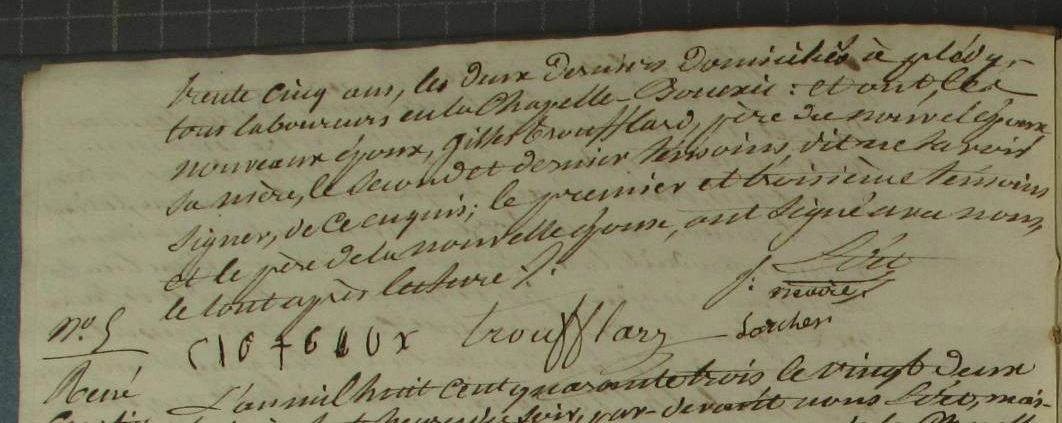 trente cinq ans, les deux derniers domiciliés à plédy,
tous laboureurs en la Chapelle-Bouexic : et ont, les
nouveaux époux, Gilles troufflard, père du nouvel époux,
sa mère, le second et dernier témoins, dit ne savoir
signer, de ce enquis ; le premier et troisième témoins
et le père de la nouvelle épouse, ont signé avec nous,
le tout après lecture ./.
trouffflarz
maire
Lorcher
n.° 5
René
L'an mil huit cent quarante trois le vingt deux
heures du soir, par-devant nous maire